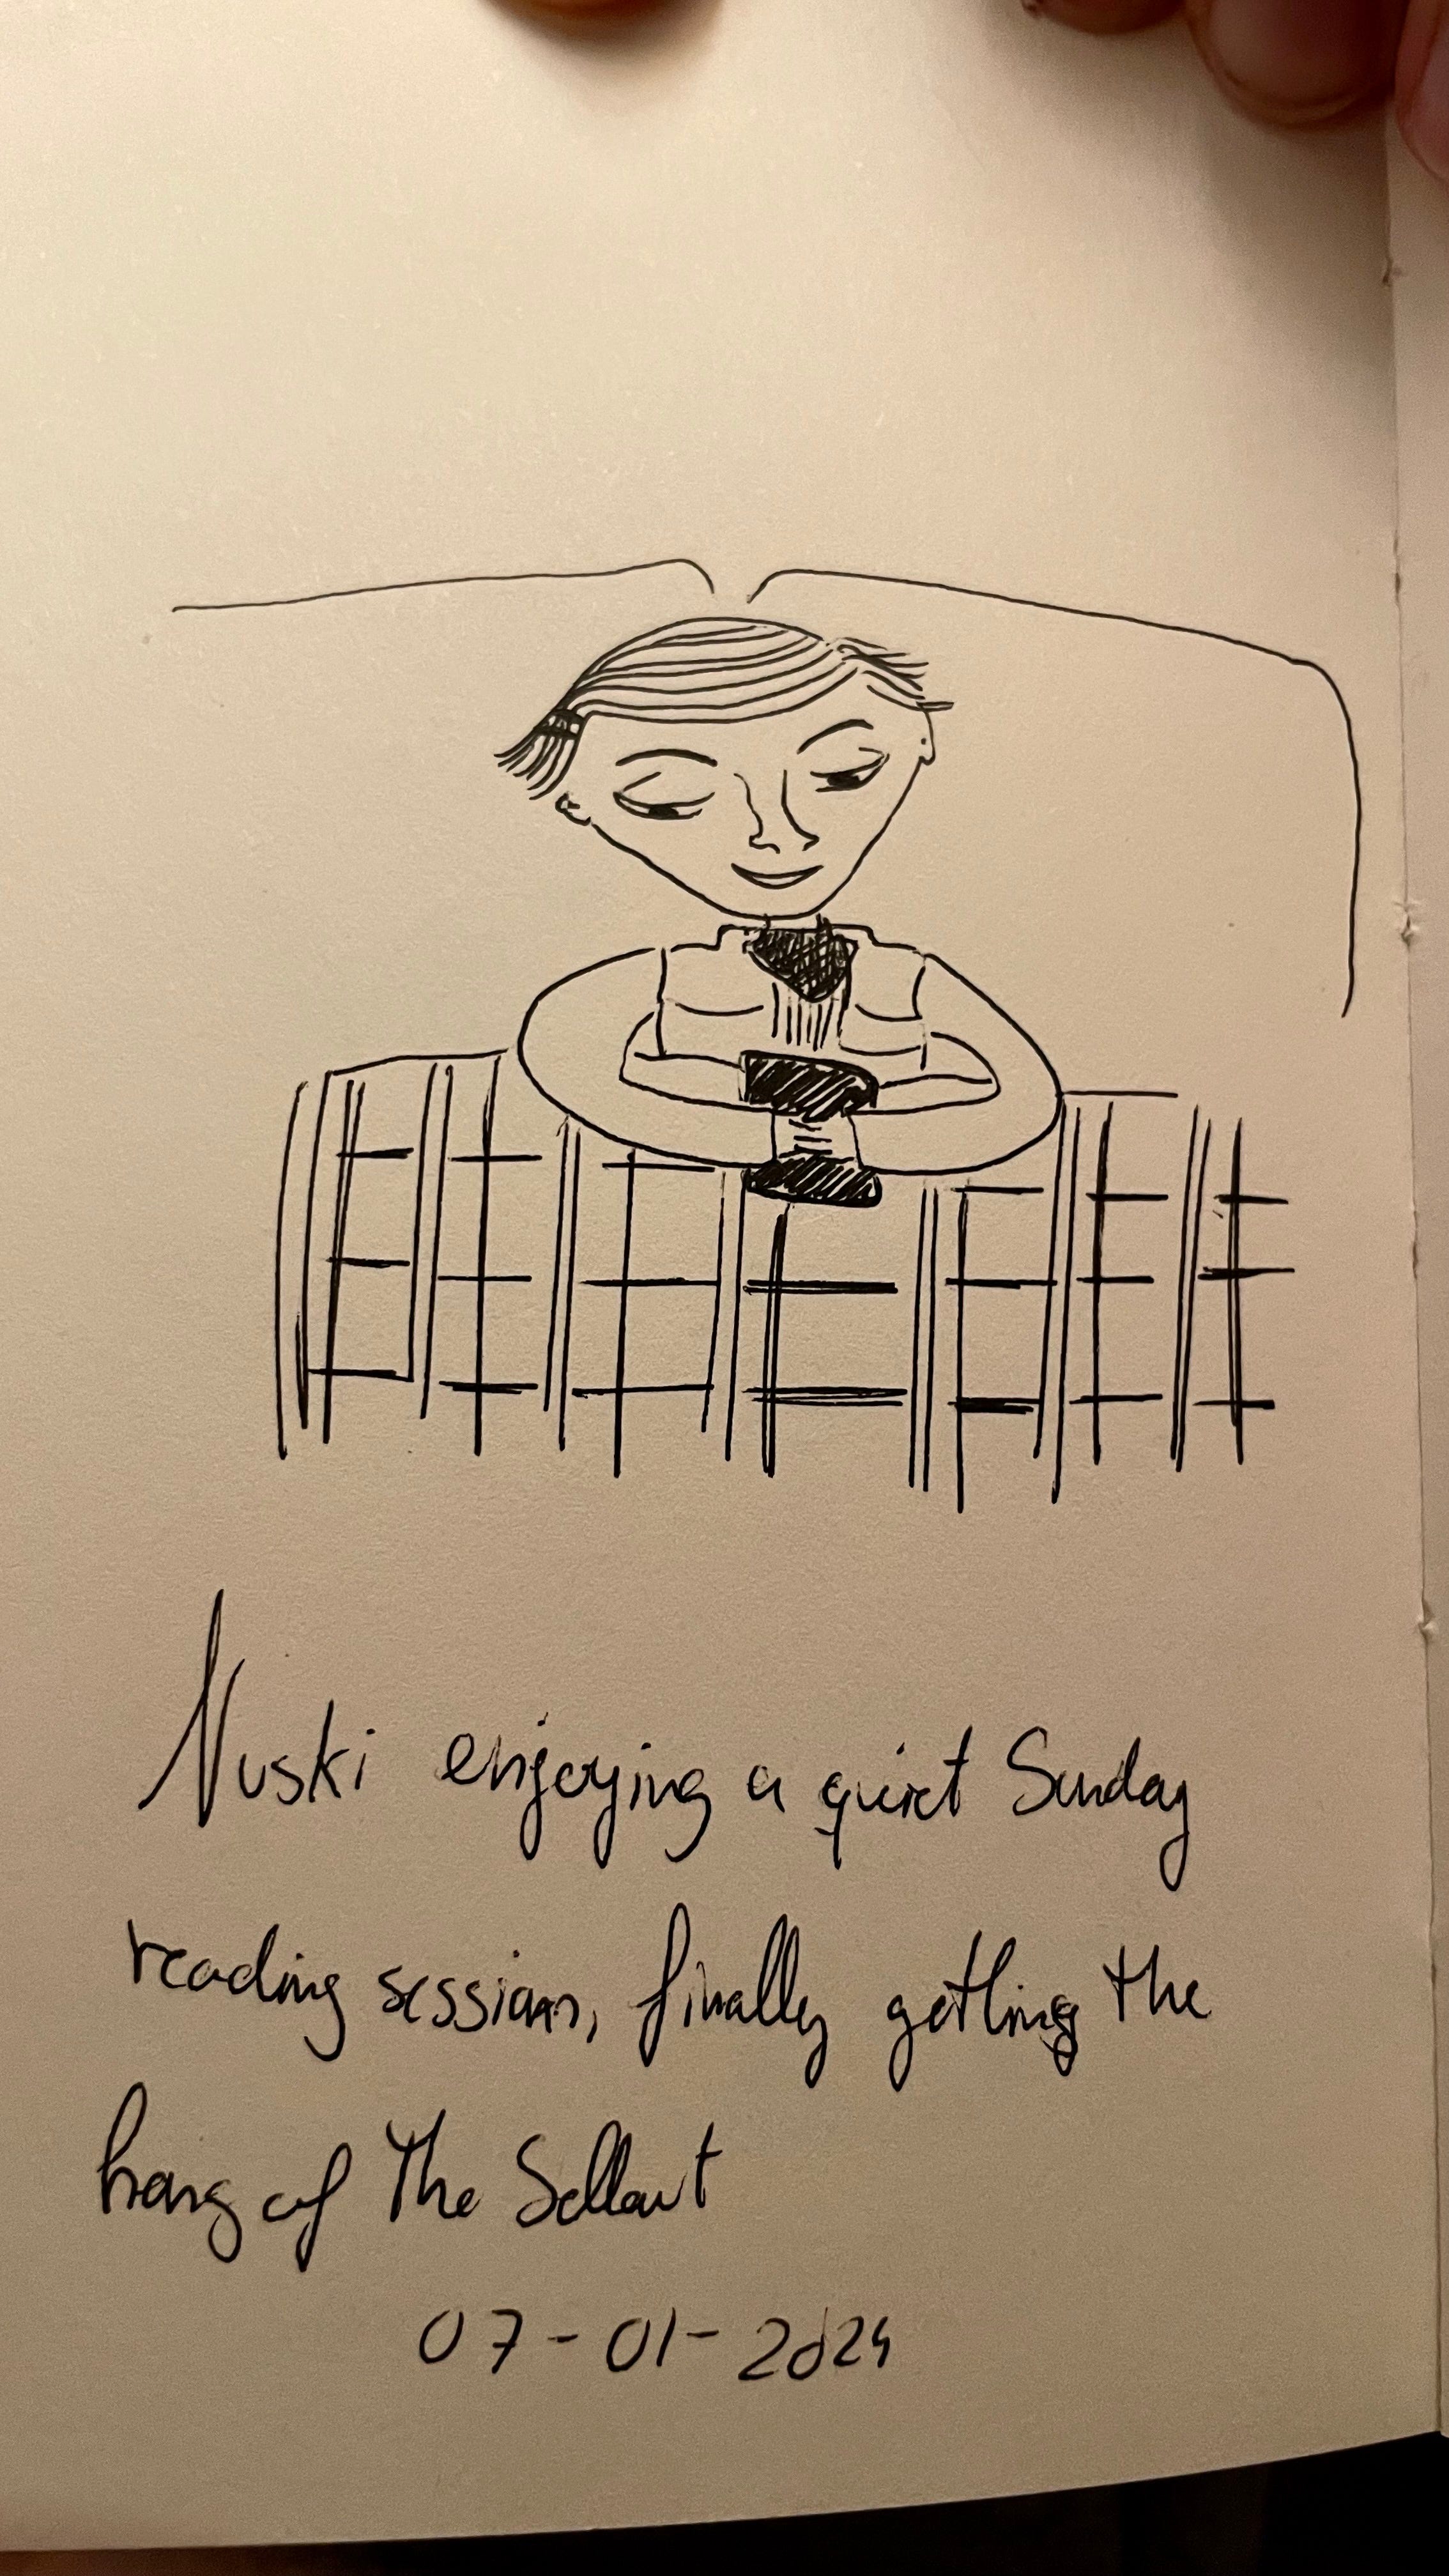 Nuski enjoying a quiet Sunday
reading session, finally getting the
hang of The Sellout
07-01-2024